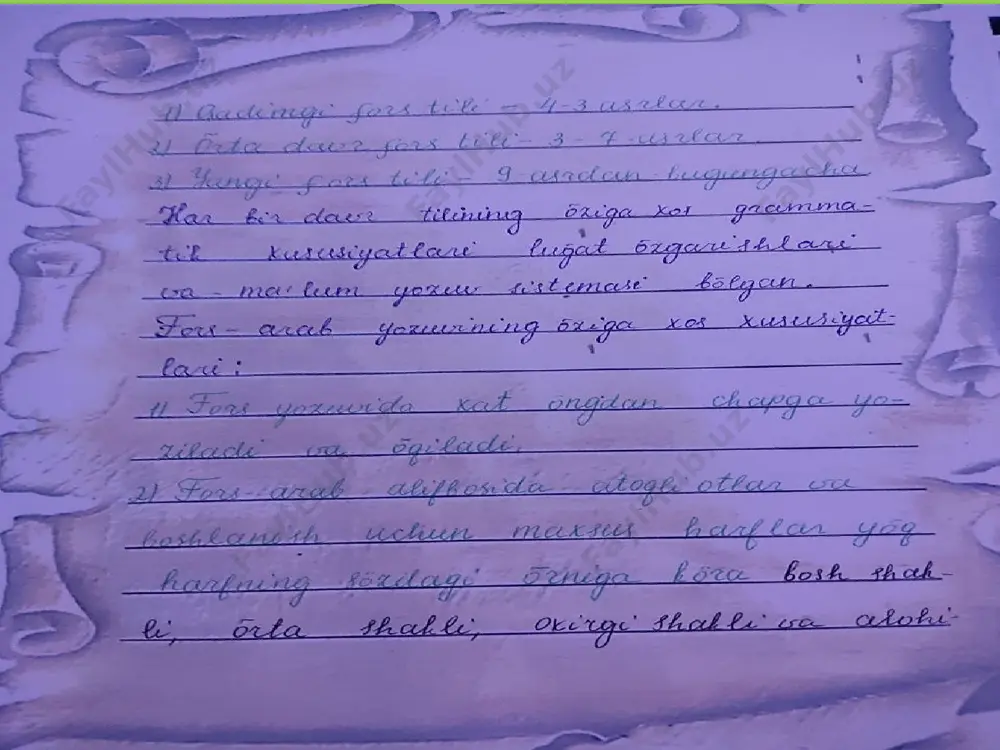 1) Qadimgi fors tili – 4-3 asrlar.
2) Õrta davr fors tili – 3 – 7 asrlar.
3) Yangi fors tili 9 asrdan bugungacha
Har bir davr tilining õziga xos gramma-
tik xususiyatlari luğat õzgarishlari
va – ma'lum yozuv sistemasi bõlgan.
Fors – arab yozuvining õziga xos xususiyat-
lari:
1) Fors yozuvida xat õngdan chapga yo-
ziladi va õqiladi.
2) Fors – arab alifbosida atoqli otlar va
boshlanish uchun maxsus harflar yõq
harfning sõzdagi õrniga kõra bosh shak-
li, õrta shakli, oxirgi shakli va alohi-
FaylHub.uz